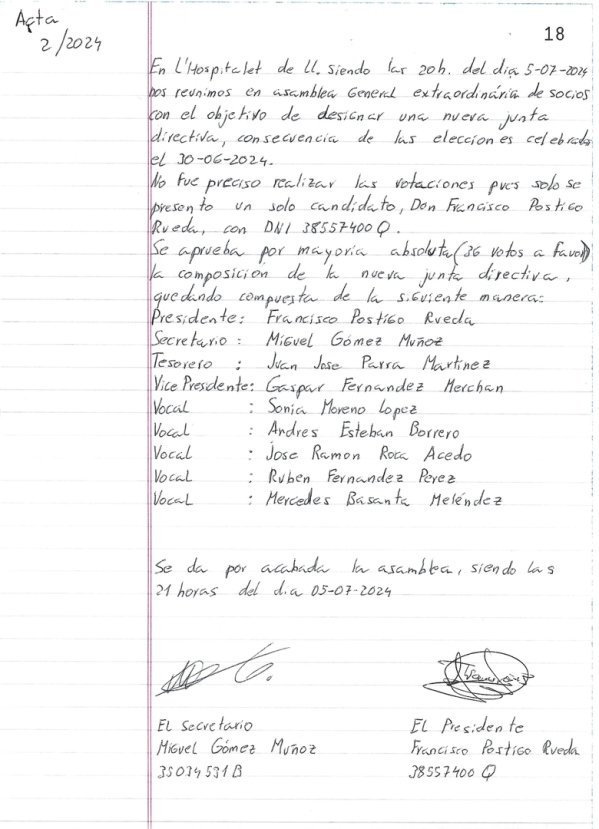 Acta
2/2024
18
En L'Hospitalet de Ll. siendo las 20h. del dia 5-07-2024
nos reunimos en asamblea General extraordinária de socios
con el objetivo de designar una nueva junta
directiva, consecuencia de las elecciones celebradas
el 30-06-2024.
No fue preciso realizar las votaciones pues solo se
presento un solo candidato, Don Francisco Postigo
Rueda, con DNI 38557400Q.
Se aprueba por mayoría absoluta (36 votos a favor)
la composición de la nueva junta directiva,
quedando compuesta de la siguiente manera:
Presidente: Francisco Postigo Rueda
Secretario : Miguel Gómez Muñoz
Tesorero : Juan Jose Parra Martinez
Vice Presidente: Gaspar Fernandez Merchan
Vocal : Sonia Moreno Lopez
Vocal : Andres Esteban Borrero
Vocal : Jose Ramon Roca Acedo
Vocal : Ruben Fernandez Perez
Vocal : Mercedes Basanta Meléndez
Se da por acabada la asamblea, siendo las
21 horas del dia 05-07-2024
El Secretario
Miguel Gómez Muñoz
35034531B
El Presidente
Francisco Postigo Rueda
38557400 Q